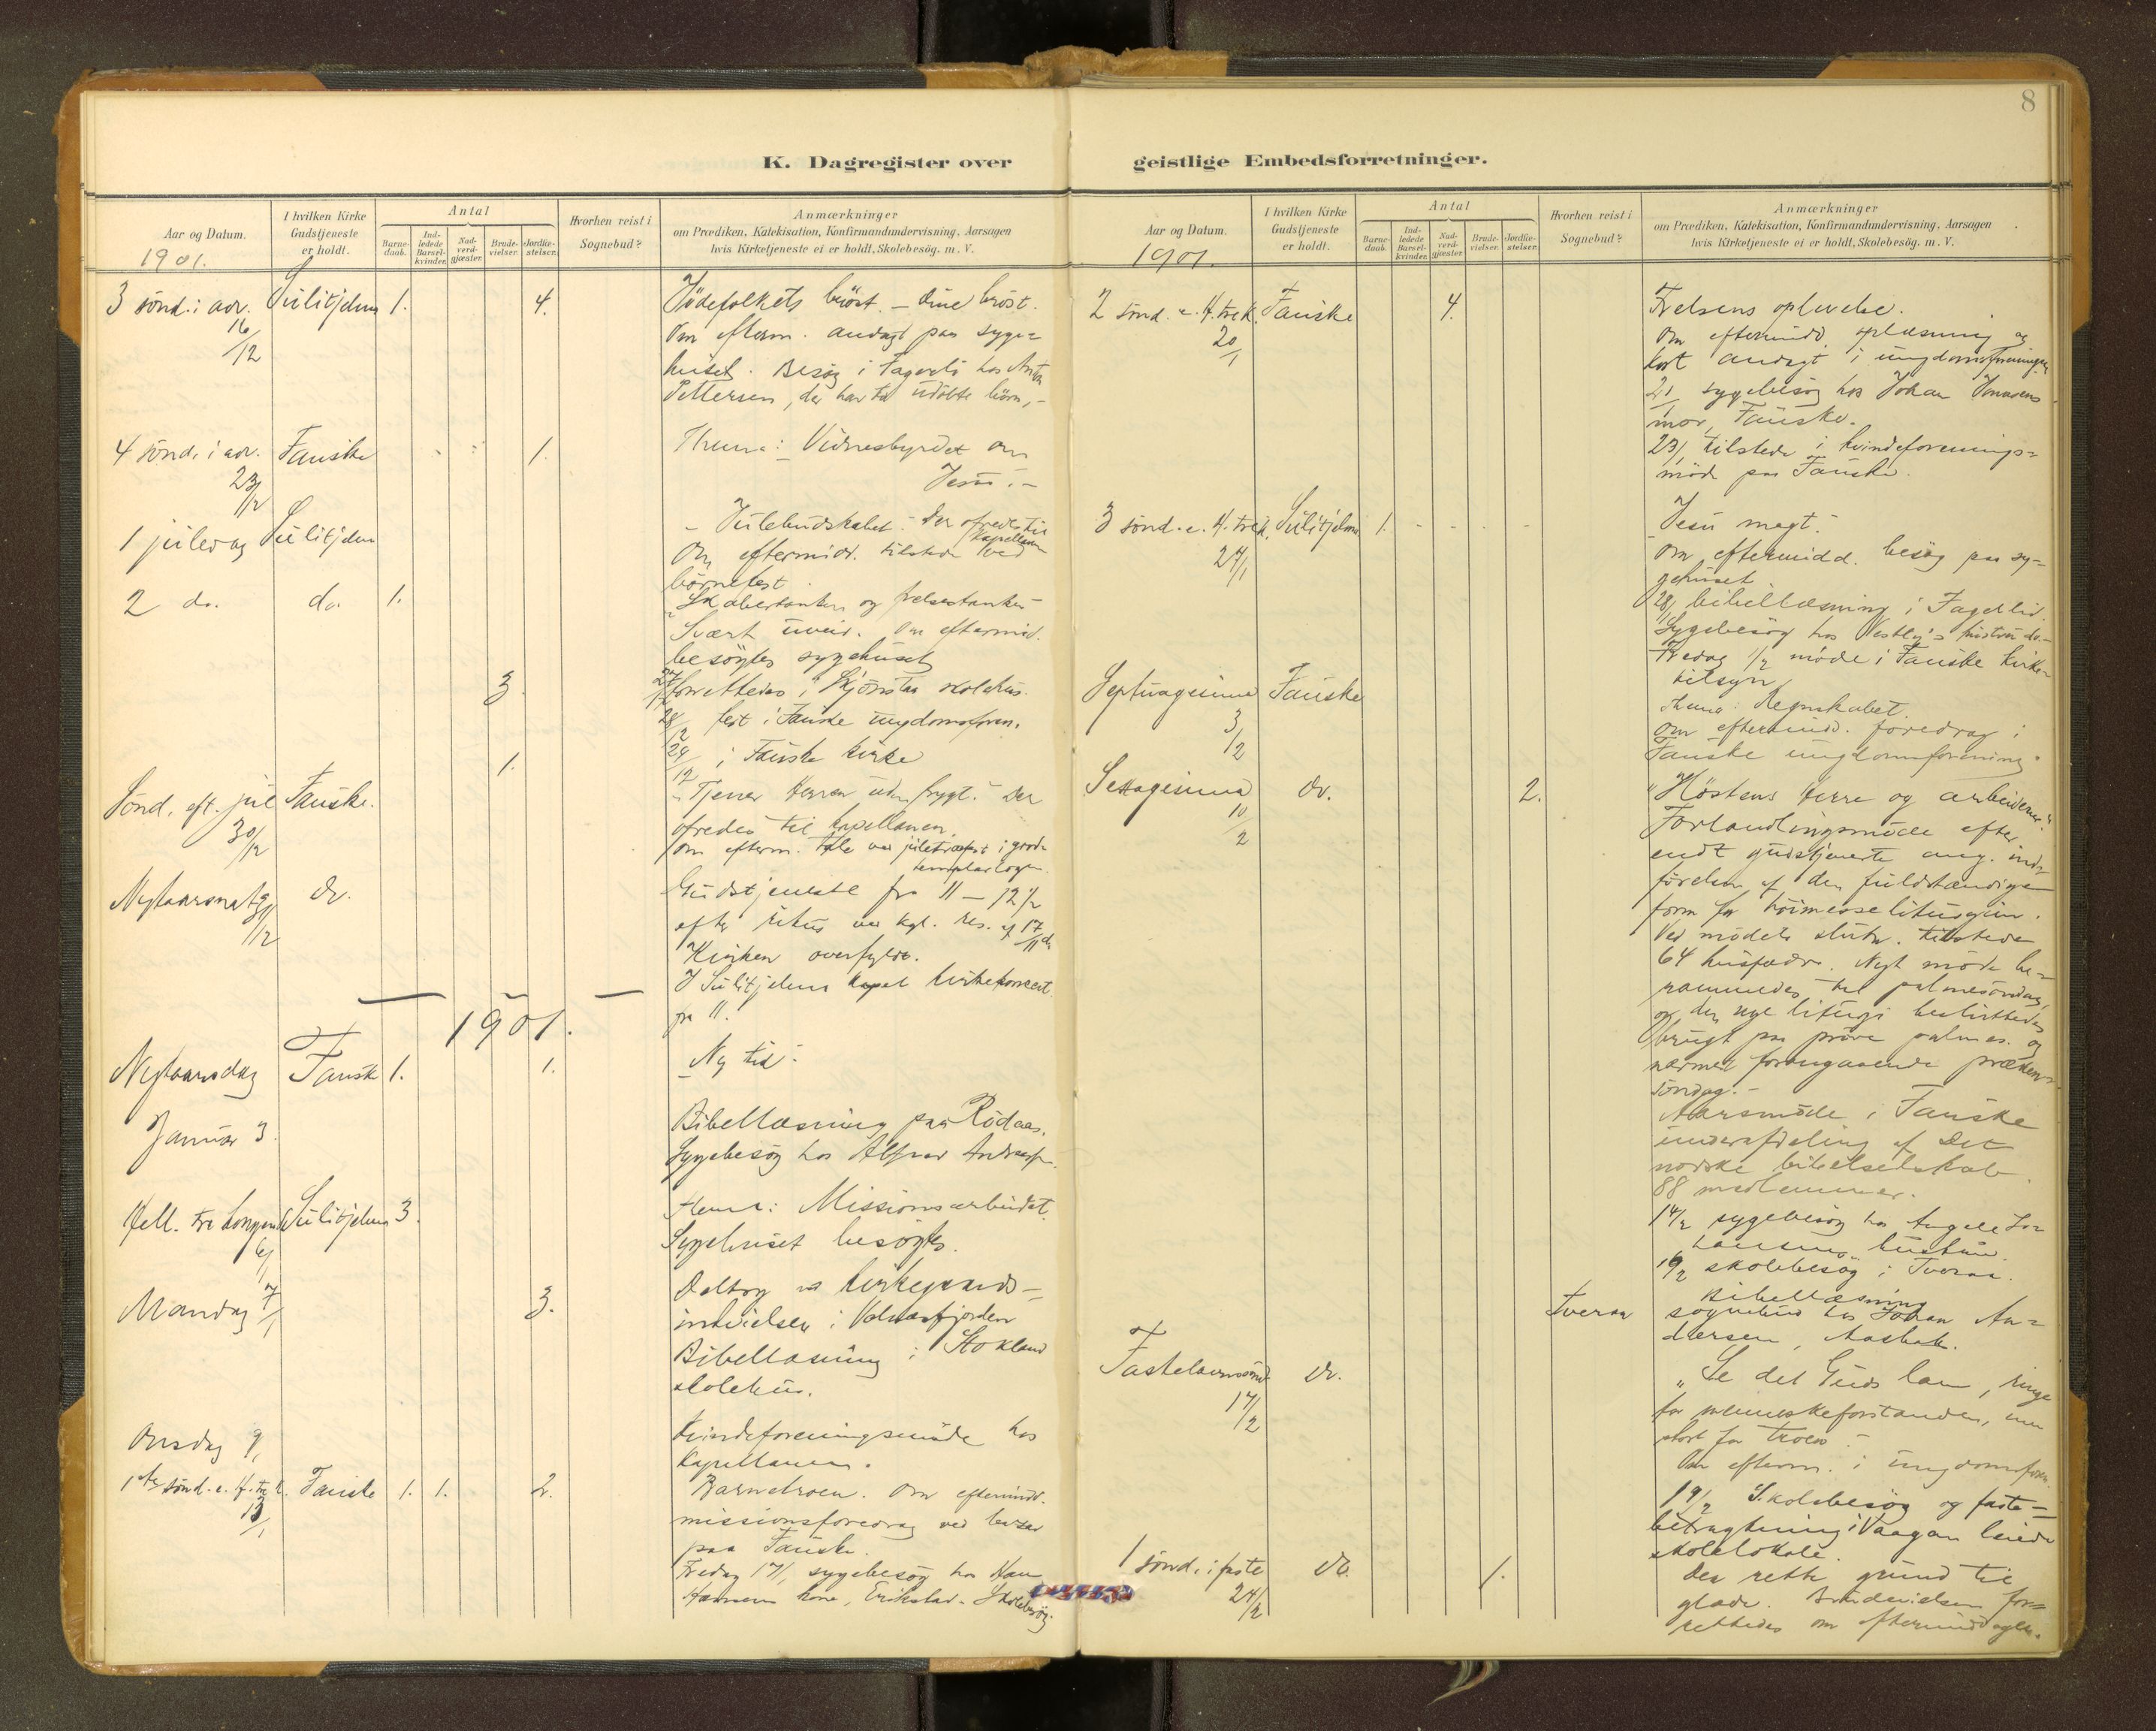 8
K. Dagregister over
geistlige Embedsforretninger.
Aar og Datum.
1901.
I hvilken Kirke
Gudstjeneste
er holdt.
Antal
Barne-
daab.
Ind-
ledede
Barsel-
kvinder.
Nad-
verd-
gjæster.
Brude-
vielser.
Jordfæ-
stelser.
Hvorhen reist i
Sognebud?
Anmærkninger
om Prædiken, Katekisation, Konfirmandundervisning, Aarsagen
hvis Kirketjeneste ei er holdt, Skolebesøg. m. V.
3 sønd. i adv. Sulitjelma 1. 4. Jødefolkets brøst. – dine brøst.
16/12
Om efterm. andagt paa syge=
huset. Besøg i Fagerli hos
Pettersen, der har to udøbte børn, –
4 sønd. i adv. Fauske 1. Thema: Vidnesbyrdet om
23/12
Jesu. –
1 juledag Sulitjelma Julebudskabet. Der ofredes til
kapellanen
Om eftermid. tilstede ved
børnefest.
2 do. do. 1. Skabertanken og frelsestanken
Svært uveir. Om eftermid.
besøgtes sygehuset
3. 27/12 forrettedes i Skjønstaa skolehus.
28/12 fest i Fauske ungdomsforen.
1. 29/12 i Fauske kirke
Sønd. eft. jul Fauske. Tjener Herren uden frygt. Der
30/12
ofredes til kapellanen.
Om efterm. tale ved juletræfest i good=
templarlogen.
Nytaarsnat 31/12 do. Gudstjeneste fra 11 – 12 1/2
efter ritus ved kgl. res. af 17/11 do
Kirken overfyldt.
I Sulitjelma kapel kirkekoncert
fra 11.
1901.
Nytaarsdag Fauske 1. 1. Ny tid.
Januar 3. Bibellæsning paa Rødaas.
Sygebesøg hos Alfred
Hell. tre kongers Sulitjelma 3. Thema: Missionsarbeidet.
6/1
Sygehuset besøgtes.
Mandag 7/1 3. Deltog ved kirkegaards=
indvielsen i Valnesfjorden
Bibellæsning i Stokland
skolehus.
Onsdag 9/1 Kvindeforeningsmøde hos
Kapellanen.
1ste sønd. e. H. tre k. Fauske 1. 1. 2. Barnetroen. Om eftermidd.
13/1
missionsforedrag ved basar
paa Fauske.
Fredag 17/1 sygebesøg hos Hans
Hansens kone, Erikstad. Skolebesøg.
Aar og Datum.
1901.
I hvilken Kirke
Gudstjeneste
er holdt.
Antal
Barne-
daab.
Ind-
ledede
Barsel-
kvinder.
Nad-
verd-
gjæster.
Brude-
vielser.
Jordfæ-
stelser.
Hvorhen reist i
Sognebud?
Anmærkninger
om Prædiken, Katekisation, Konfirmandundervisning, Aarsagen
hvis Kirketjeneste ei er holdt, Skolebesøg. m. V.
2 sønd. e. H. tre k. Fauske 4. Frelsens oplevelse.
20/1
Om eftermidd. oplæsning og
kort andagt i ungdomsforeningen
21/1 sygebesøg hos Johan
mor, Fauske.
23/1 tilstede i kvindeforenings=
møde paa Fauske.
3 sønd. e. H. tre k. Sulitjelma 1. Jesu magt.
27/1
Om eftermidd. besøg paa sy=
gehuset.
28/1 bibellæsning i Fagerlid.
Sygebesøg hos Vestly's hustru do. –
Fredag 1/2 møde i Fauske kirke=
tilsyn
Septuagesima Fauske Thema: Regnskabet.
3/2
Om eftermidd. foredrag i
Fauske ungdomsforening.
Sexagesima do. 2. "Høstens Herre og arbeiderne."
10/2
Forhandlingsmøde efter
endt gudstjeneste ang. ind=
førelsen af den fuldstændige
form for høimesseliturgien.
Ved mødets slutn. tilstede
64 husfædre. Nyt møde be=
rammedes til palmesøndag,
og den nye liturgi besluttedes
brugt paa prøve palmes. og
nærmest foregaaende præken=
søndag. –
Aarsmøde i Fauske
underafdeling af Det
norske bibelselskab
88 medlemmer.
14/2 sygebesøg hos
hustru.
16/2 skolebesøg i Tveraa.
Bibellæsning
Tveraa sognebud hos Johan An=
dersen,
Fastelavnssønd. do. "Se det Guds lam, ringe
17/2
for menneskeforstanden, men
stort for troen.
Om efterm. i ungdomsforen.
19/2 Skolebesøg og faste=
betragtning i Vaagan leiede
skolelokale.
1 sønd. i faste do. 1. Den rette grund til
24/2
glæde. Brudevielsen for=
rettedes om eftermiddagen.